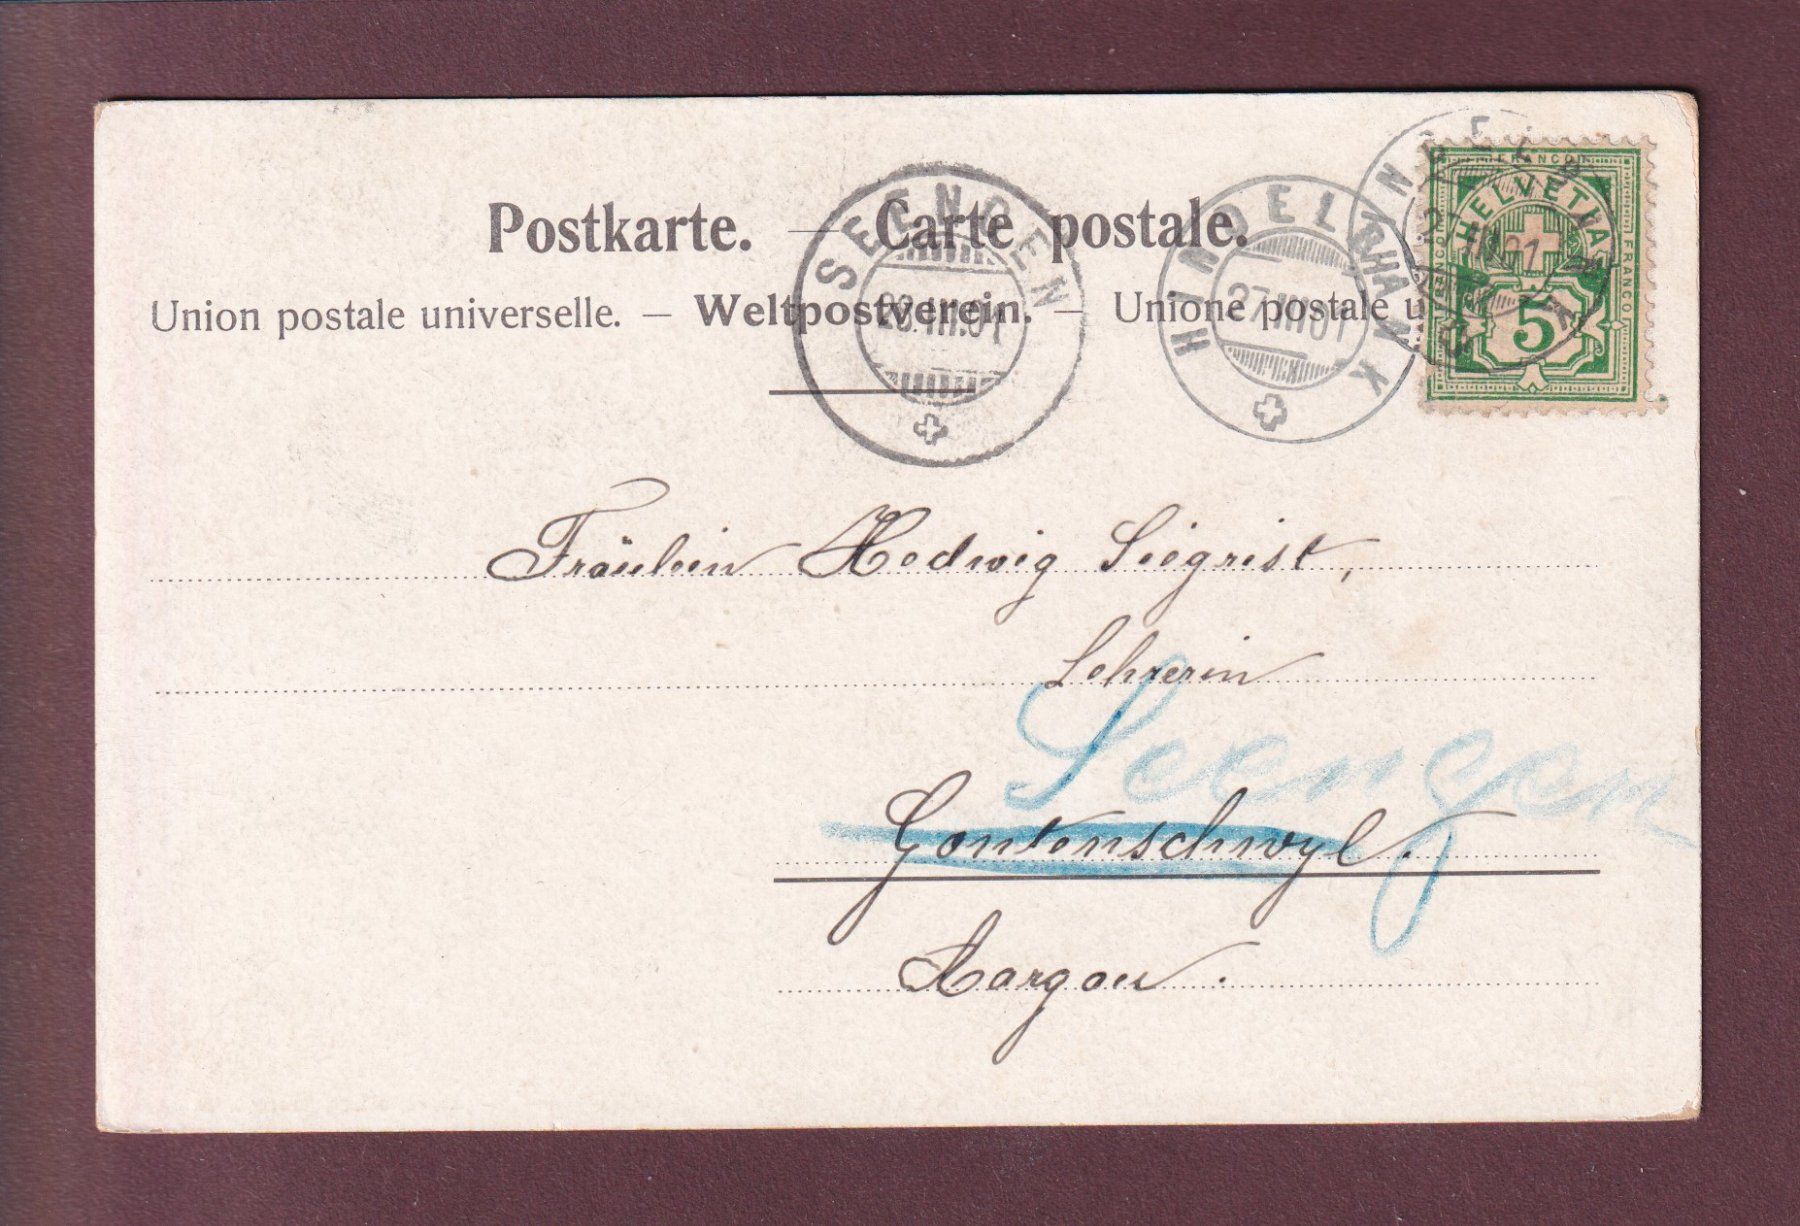 Postkarte. — Carte postale.
Union postale universelle. — Weltpostverein. — Unione postale u
SEENGEN
28.III.01
HINDELBANK
27.III.01
HINDELBANK
FRANCO
HELVETIA
FRANCO
FRANCO
5
Fräulein Hedwig Siegrist,
Lehrerin
Seengen
Gontenschwyl.
Aargau.